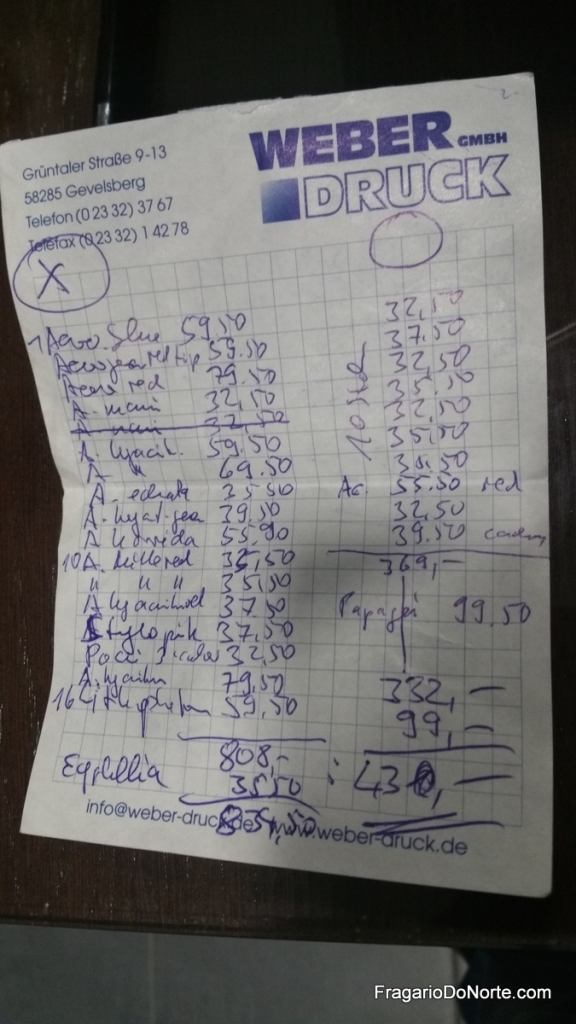 Grüntaler Straße 9-13
58285 Gevelsberg
Telefon (0 23 32) 37 67
Telefax (0 23 32) 1 42 78
WEBER GMBH
DRUCK
X
1 Acro. Blue 59,50
59.50
Acro red 79.50
A. 32,50
A. 32,50
A. hyacin. 59.50
A " 69.50
A. echinata 35,50
A. hyat. 39,50
A. florida 55,90
10 A. Millered 35,50
" " " 35,50
A hyacinthus 37.50
Stylo pink 37,50
Poci 32,50
A. 79,50
16 59,50
808,-
35,50
854,50
32,50
37.50
32,50
35,50
32,50
35,50
35,50
Ac. 55.50 red
32,50
39.50
369,-
Papagei 99.50
332,-
99,-
: 430,-
info@weber-druck.de www.weber-druck.de
FragarioDoNorte.com